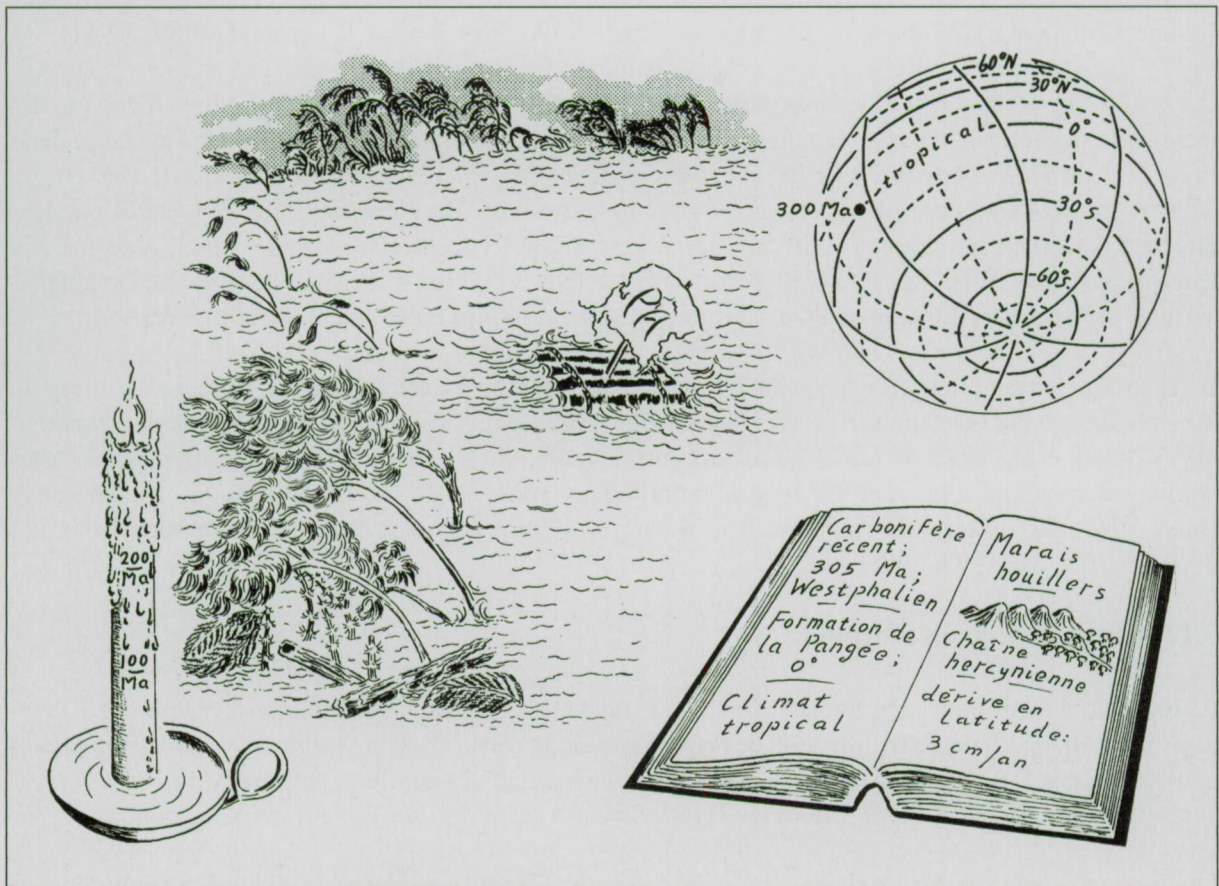 60°N
30°N
0°
tropical
30°S
300 Ma
60°S
Pa
200
Ma
100
Ma
Carbonifère
récent;
305 Ma;
Westphalien
Formation de
la Pangée;
0°
Climat
tropical
Marais
houillers
Chaîne
hercynienne
dérive en
latitude:
3 cm/an